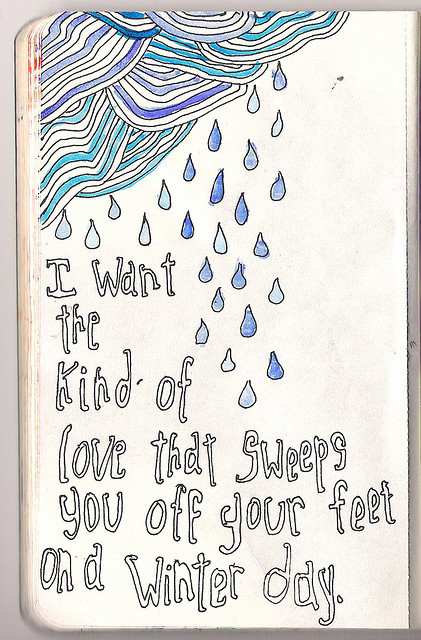 I want
the
kind of
love that sweeps
you off your feet
on a winter day.